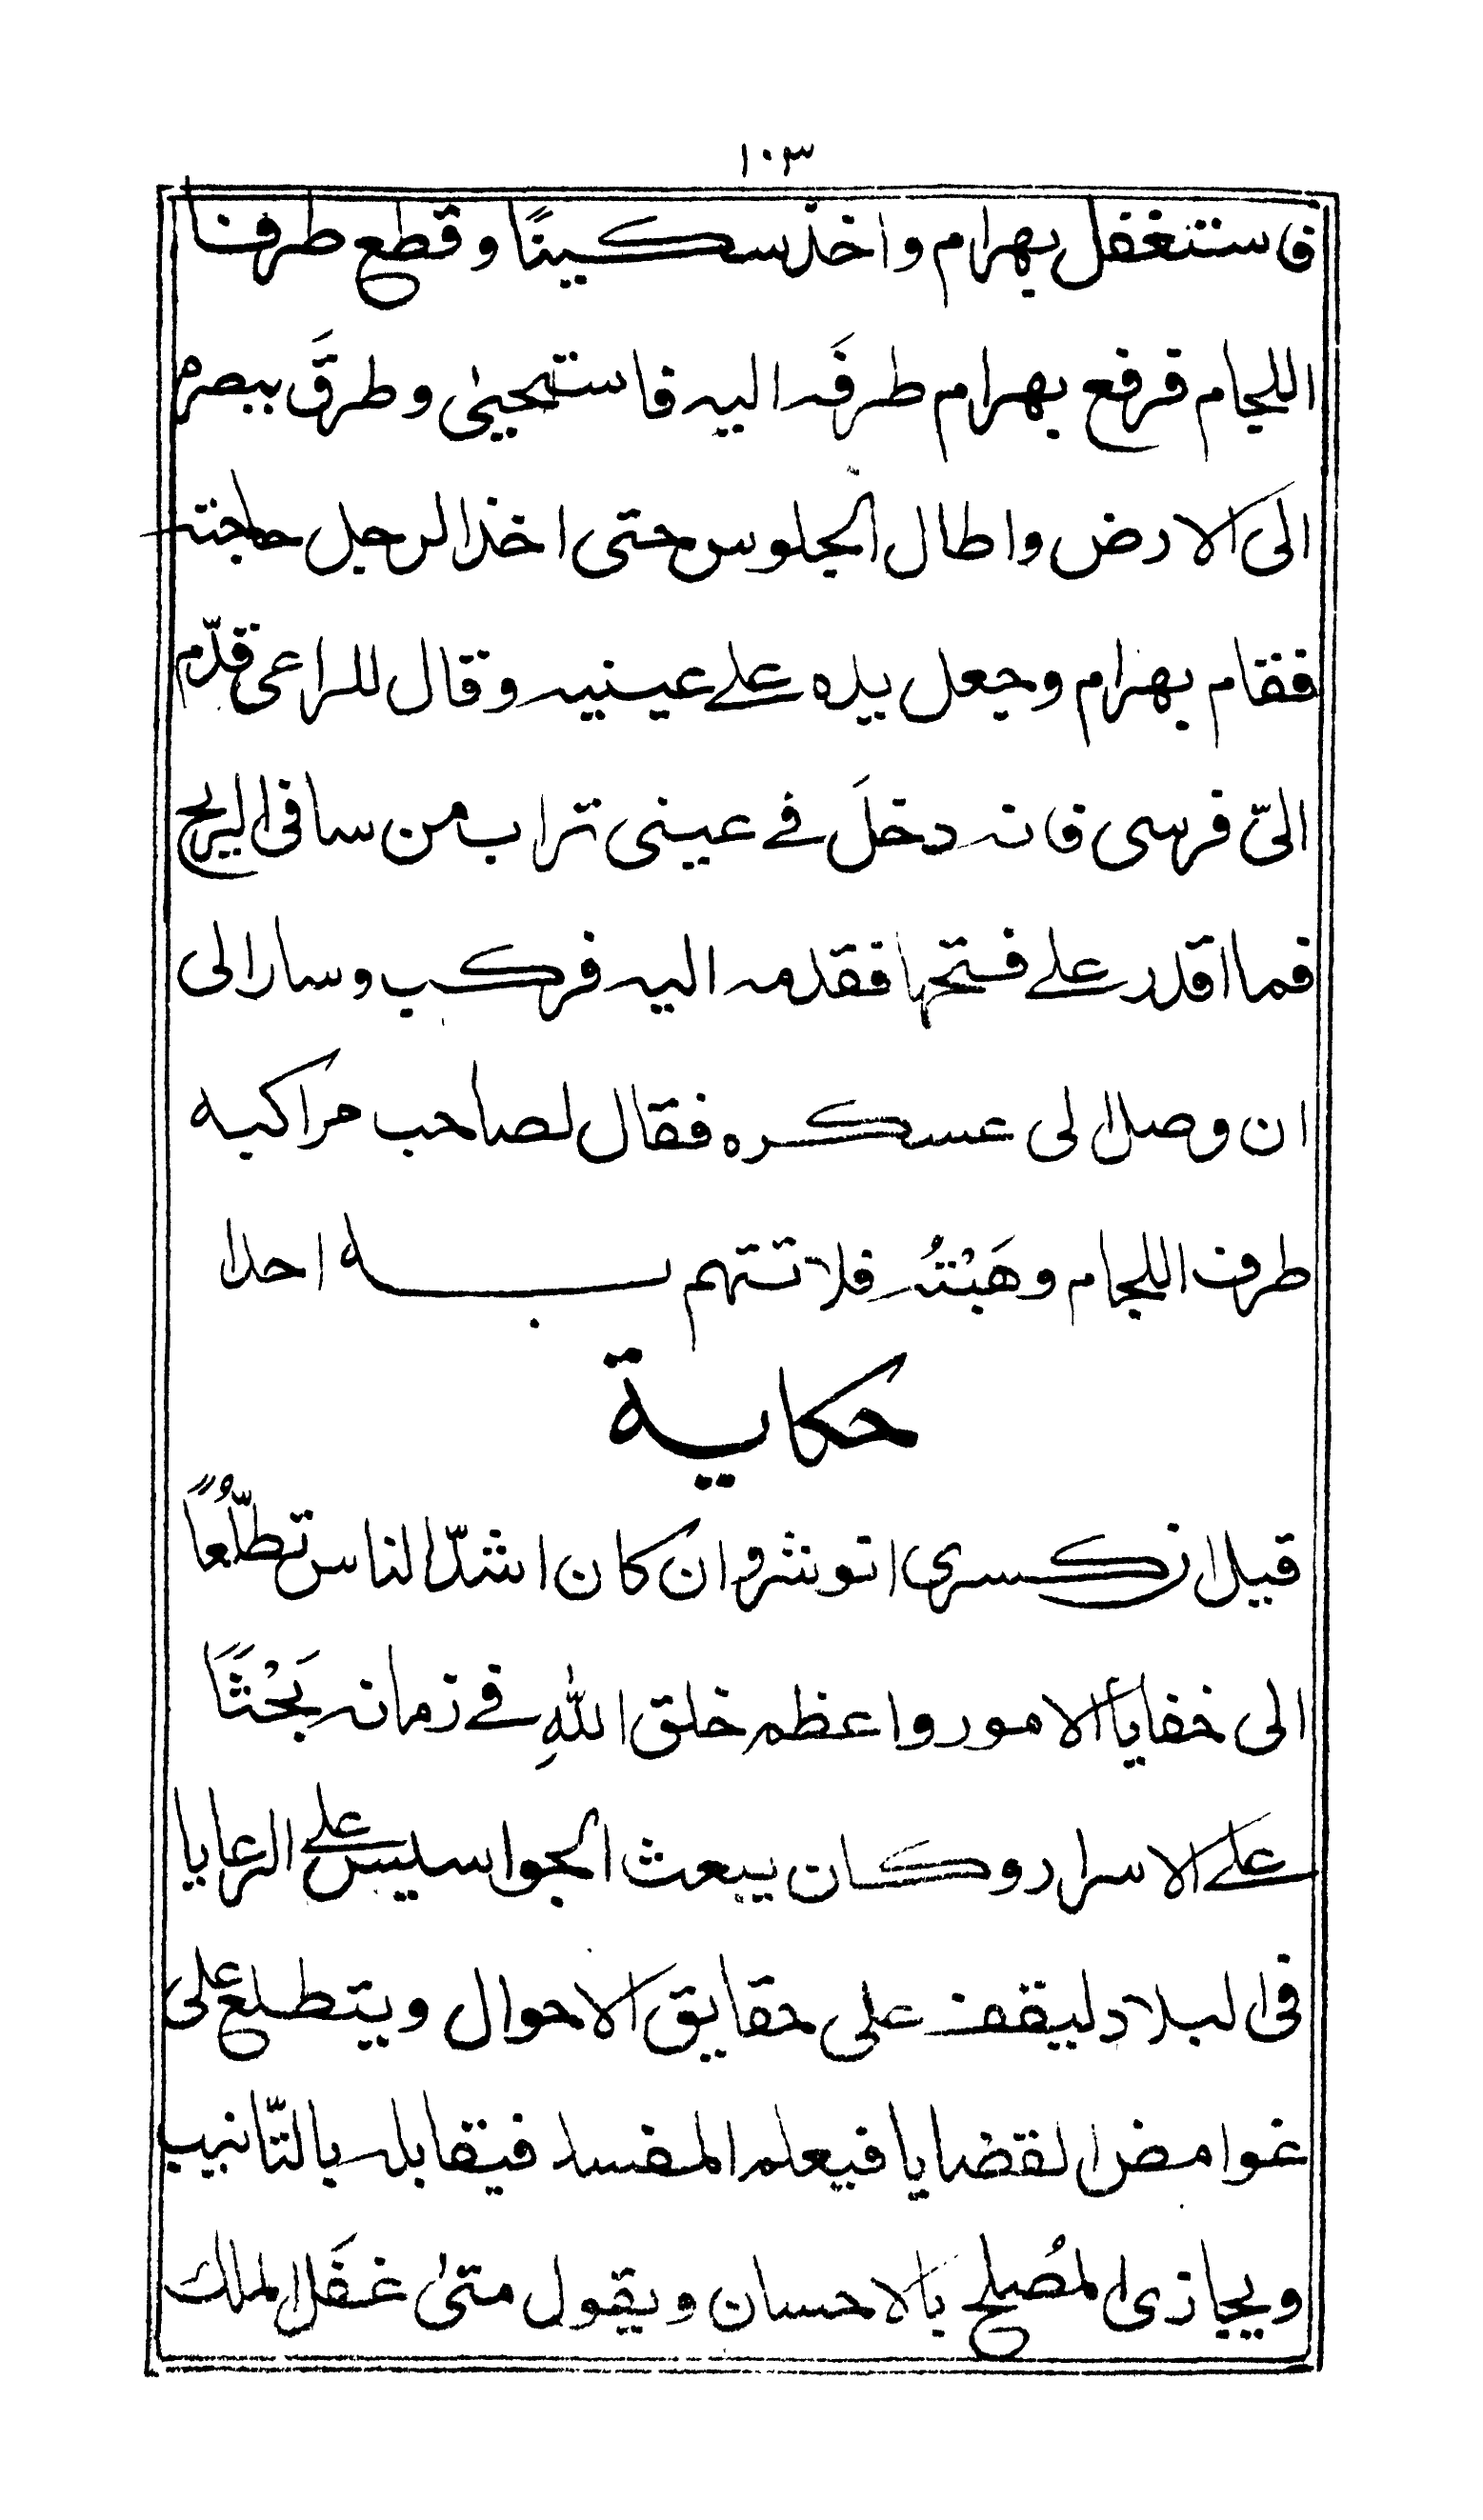 ١٠٣
فاستغفل بهرام واخذ سكينًا وقطع طرف
اللجام فرفع بهرام طرفَه اليه فاستحيىٰ وطرقَ ببصره
الى الارض واطال الجلوس حتى اخذ الرجل حاجته
فقام بهرام وجعل يده على عينيه وقال للراعى قدّم
الىّ فرسى فانه دخلَ فى عينى تراب من سافى الريح
فما اقدر على فتحها فقدمه اليه فركب وسار الى
ان وصل الى عسكره فقال لصاحب مراكبه
طرف اللجام وهَبْتُه فلا تتهم به احدا
حكاية
قيل ان كسرى انوشروان كان اشدّ الناس تطلّعًا
الى خفايا الامور واعظم خلق اللهِ فى زمانه بَحْثًا
على الاسرار وكان يبعث الجواسيس على الرعايا
فى البلاد ليقف على حقايق الاحوال ويتطلع على
غوامض القضايا فيعلم المفسد فيقابله بالتّانيب
ويجازى المُصلح بالاحسان ويقول متىٰ غفَل الملك